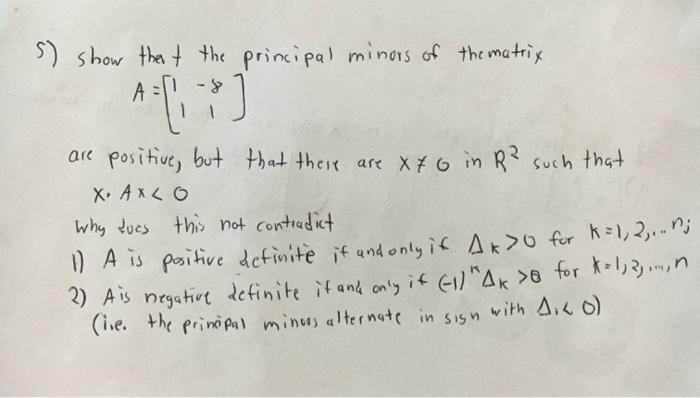 5) show that the principal minors of the matrix
A = [1 -8
1 1]
are positive, but that there are x ≠ 0 in R² such that
x · Ax < 0
Why does this not contradict
1) A is positive definite if and only if Δk > 0 for k = 1, 2, ... n;
2) A is negative definite if and only if (-1)ⁿ Δk > 0 for k = 1, 2, ..., n
(i.e. the principal minors alternate in sign with Δ₁ < 0)